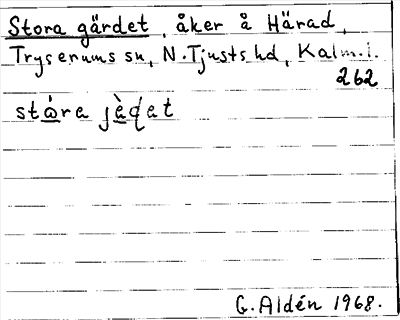 Stora gärdet, åker å Härad,
Tryserums sn, N. Tjusts hd, Kalm. l.
262
stòra jèḍat
G. Aldén 1968.